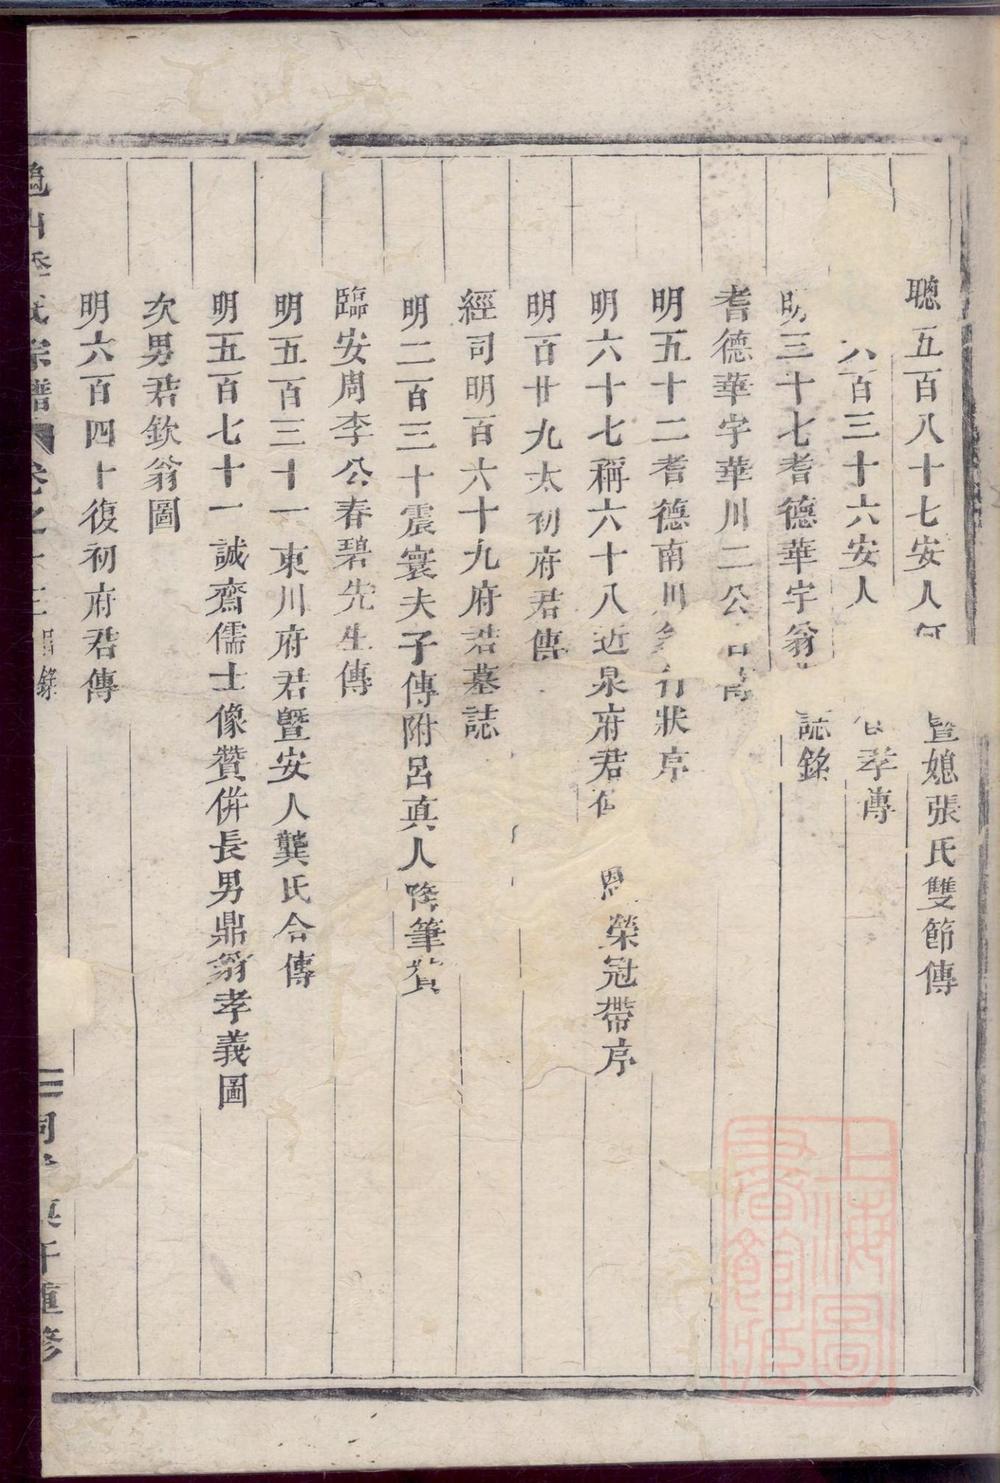 聰五百八十七安人 暨媳張氏雙節傳
六百三十六安人 孝傳
明三十七耆德華宇翁 誌銘
耆德華宇華川二公
明五十二耆德南川 行狀序
明六十七稱六十八近泉府君 恩榮冠帶序
明百廿九太初府君傳
經司明百六十九府君墓誌
明二百三十震寰夫子傳附呂真人降筆贊
臨安周李公春碧先生傳
明五百三十一東川府君暨安人龔氏合傳
明五百七十一誠齋儒士像贊併長男鼎翁孝義圖
次男君欽翁圖
明六百四十復初府君傳
山李氏宗譜 卷之 三目錄 二 同 庚午重修
上海圖書館藏